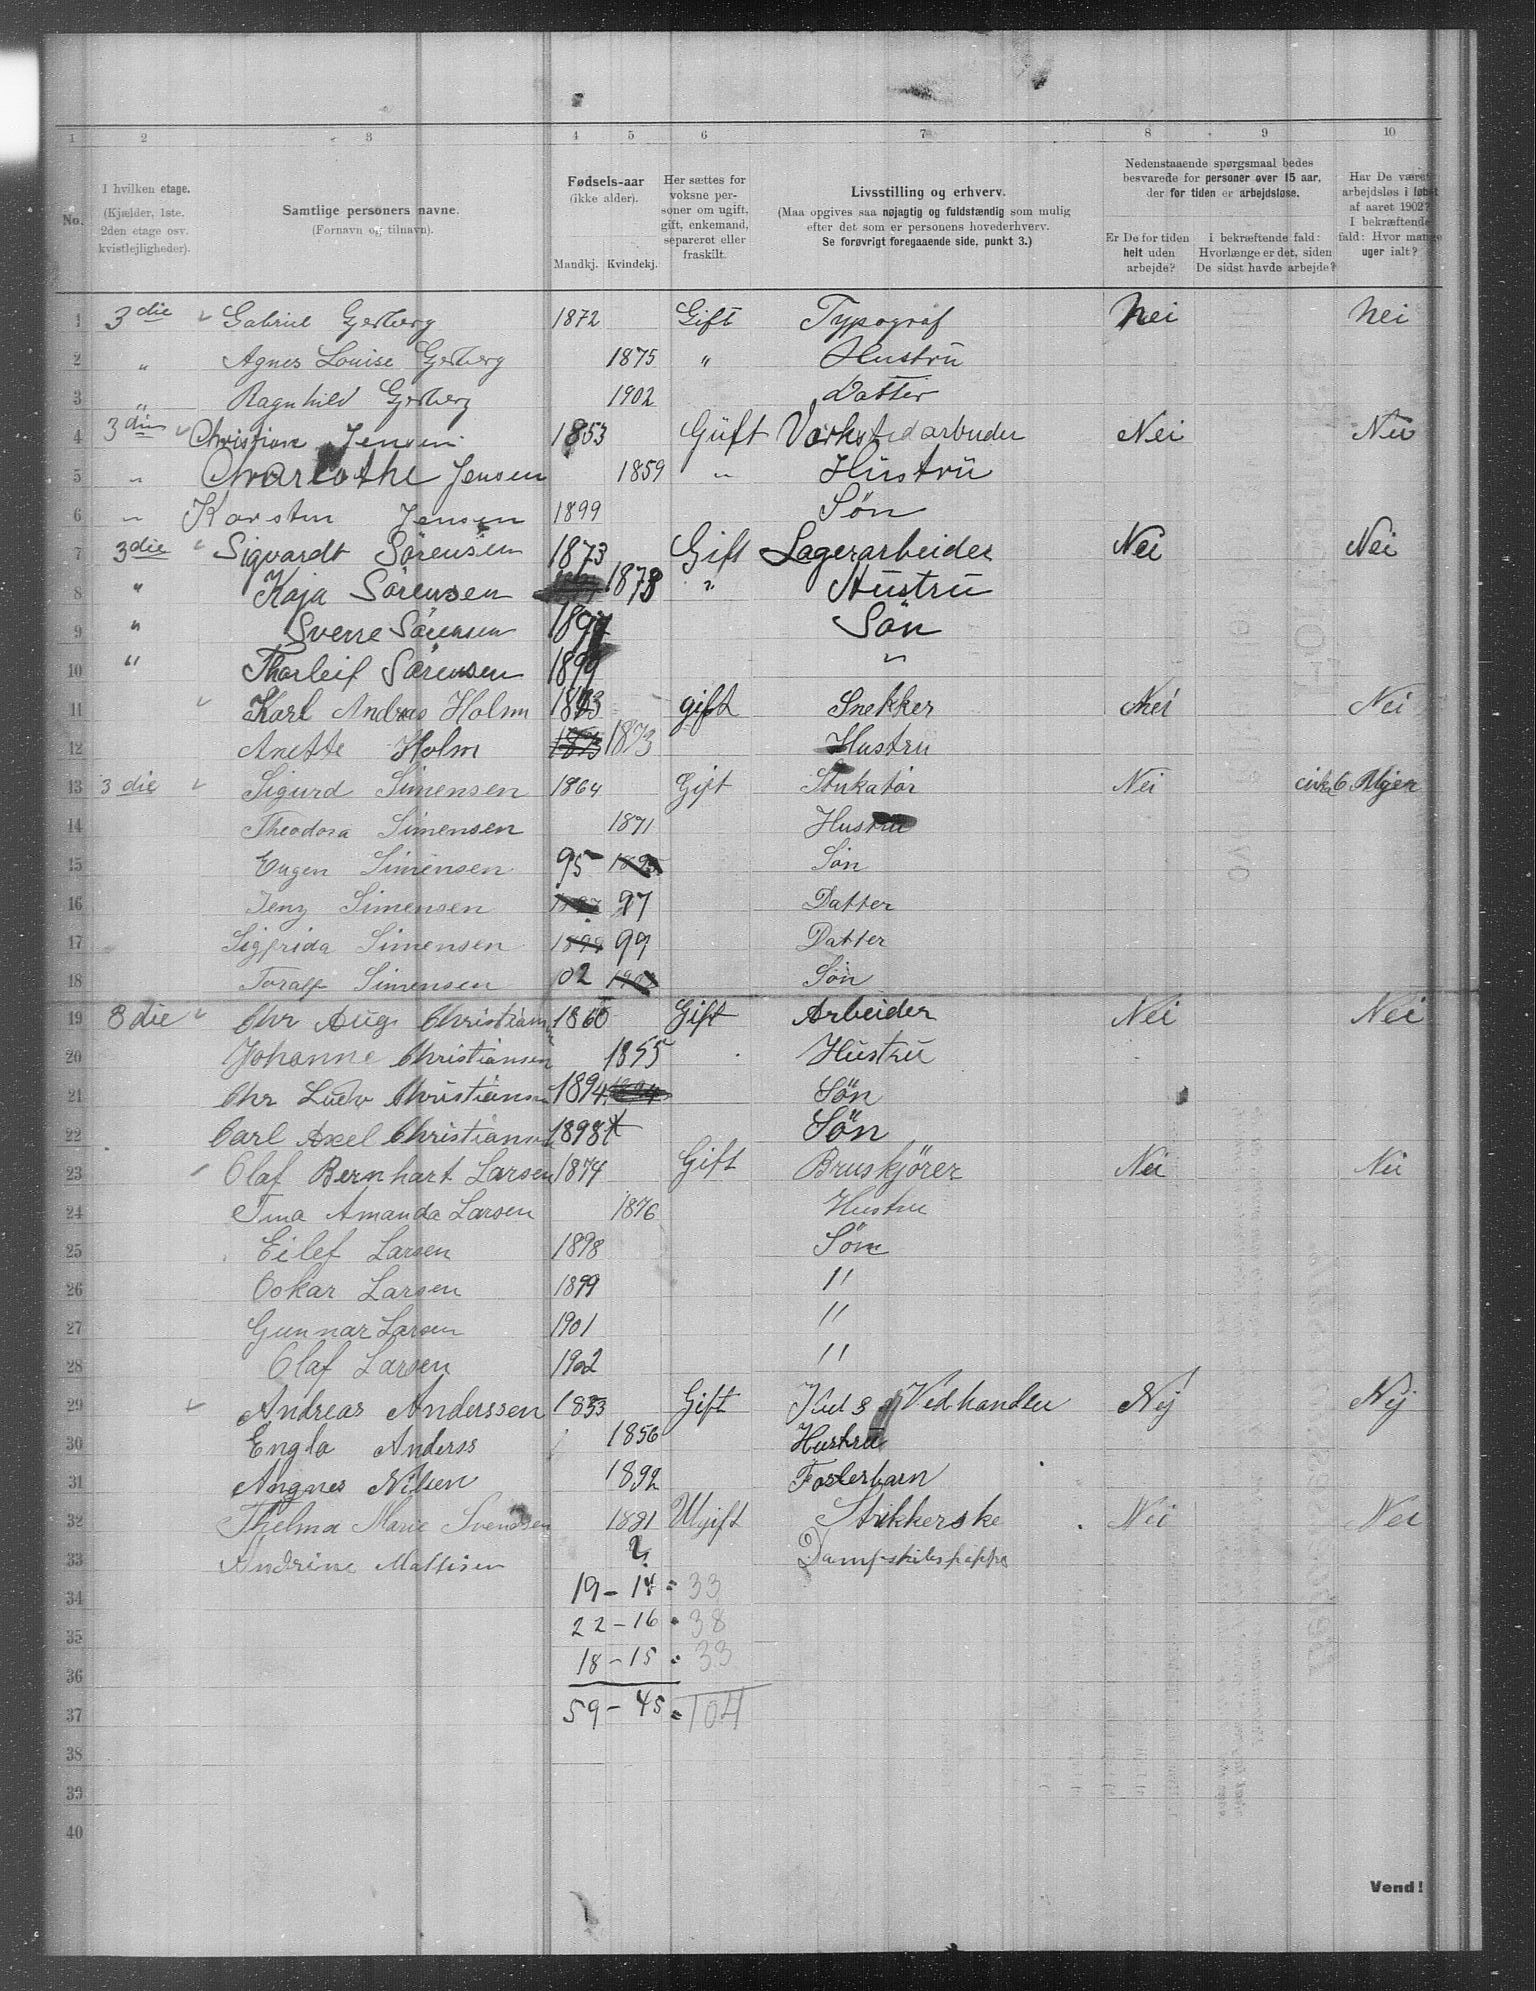 1 2 3 4 5 6 7 8 9 10
No.
I hvilken etage.
(Kjælder, 1ste. 2den etage osv. kvistlejligheder).
Samtlige personers navne.
(Fornavn og tilnavn).
Fødsels-aar
(ikke alder).
Mandkj. Kvindekj.
Her sættes for voksne personer om ugift, gift, enkemand, separeret eller fraskilt.
Livsstilling og erhverv.
(Maa opgives saa nøjagtig og fuldstændig som mulig efter det som er personens hovederhverv.
Se forøvrigt foregaaende side, punkt 3.)
Nedenstaaende spørgsmaal bedes besvarede for personer over 15 aar, der for tiden er arbejdsløse.
Er De for tiden helt uden arbejde?
I bekræftende fald: Hvorlænge er det, siden De sidst havde arbejde?
Har De været arbejdsløs i løbet af aaret 1902? I bekræftende fald: Hvor mange uger ialt?
1 3die Gabriel Gerberg 1872 Gift Typograf Nei Nei
2 " Agnes Louise Gerberg 1875 " Hustru
3 " Ragnhild Gerberg 1902 Datter
4 3die Christian Jensen 1853 Gift Værkstedarbeider Nei Nei
5 " Charlothe Jensen 1859 " Hustru
6 " Karsten Jensen 1899 Søn
7 3die Sigvardt Sørensen 1873 Gift Lagerarbeider Nei Nei
8 " Kaja Sørensen 1878 " Hustru
9 " Sverre Sørensen 1897 Søn
10 " Thorleif Sørensen 1899 "
11 Karl Andreas Holm 1873 gift Snekker Nei Nei
12 Anette Holm 1873 1873 Hustru
13 3die Sigurd Simensen 1864 Gift Stukatør Nei cirka 6 Uger
14 Theodora Simensen 1871 Hustru
15 Eugen Simensen 95 1895 Søn
16 Jeny Simensen 97 Datter
17 Sigfrida Simensen 1899 99 Datter
18 Toralf Simensen 02 1902 Søn
19 3die Chr Aug Christiansen 1860 Gift Arbeider Nei Nei
20 Johanne Christiansen 1855 Hustru
21 Chr Ludv Christiansen 1894 1894 Søn
22 Carl Axel Christiansen 1898 Søn
23 Olaf Bernhart Larsen 1874 Gift Bruskjörer Nei Nei
24 Tina Amanda Larsen 1876 Hustru
25 Eilef Larsen 1898 Søn
26 Oskar Larsen 1899 "
27 Gunnar Larsen 1901 "
28 Olaf Larsen 1902 "
29 Andreas Anderssen 1853 Gift Kul & Vedhandler Nej Nej
30 Engla Anderss 1856 Hustru
31 Angnes Nilsen 1892 Fosterbarn
32 Thelma Marie Svendsen 1881 Ugift Strikkerske Nei Nei
33 Andrine Mathisen ? Dampskibs
34 19 - 14 = 33
35 22 - 16 = 38
36 18 - 15 = 33
37 59 - 45 = 104
38
39
40
Vend!